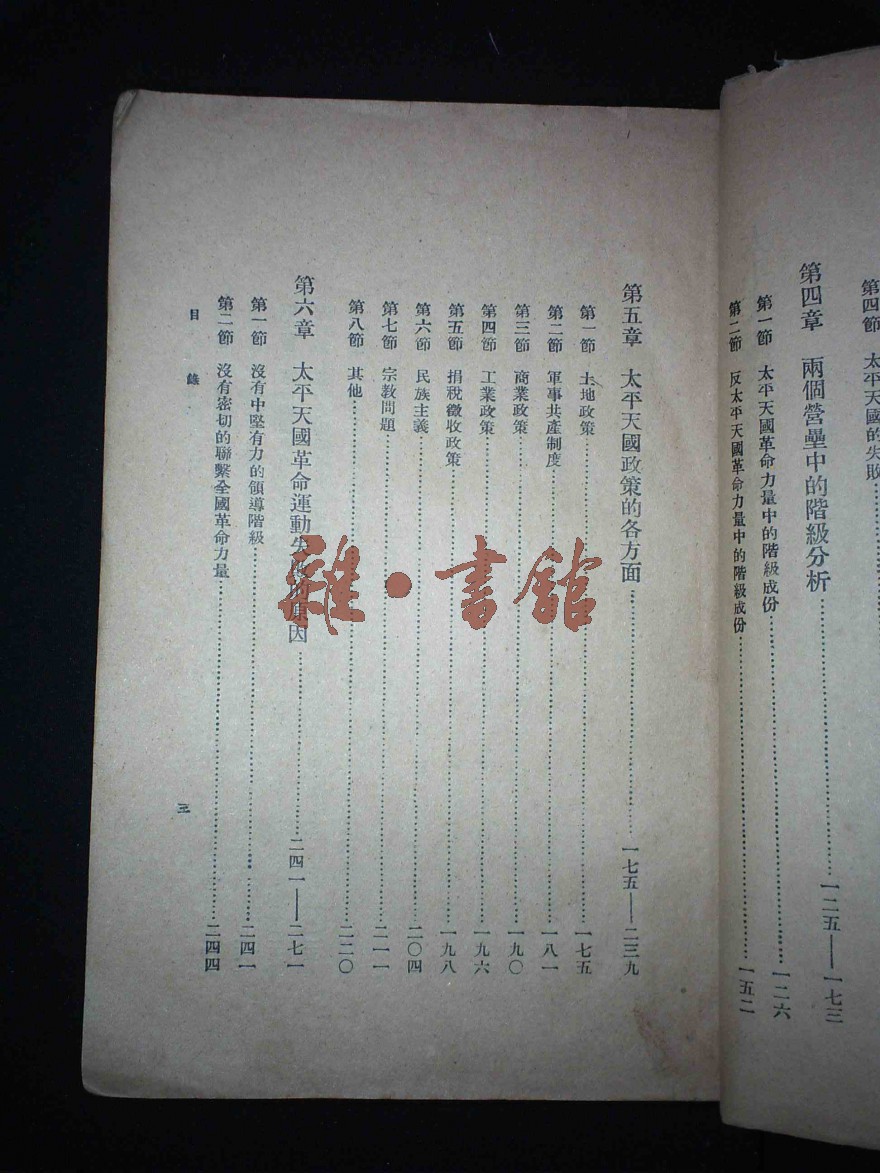 第四節 太平天國的失敗
第四章 兩個營壘中的階級分析…………一二五——一七三
第一節 太平天國革命力量中的階級成份…………一二六
第二節 反太平天國革命力量中的階級成份…………一五二
第五章 太平天國政策的各方面…………一七五——二三九
第一節 土地政策…………一七五
第二節 軍事共產制度…………一八一
第三節 商業政策…………一九〇
第四節 工業政策…………一九六
第五節 捐稅徵收政策…………一九八
第六節 民族主義…………二〇四
第七節 宗教問題…………二一一
第八節 其他…………二二〇
第六章 太平天國革命運動失敗的原因…………二四一——二七一
第一節 沒有中堅有力的領導階級…………二四一
第二節 沒有密切的聯繫全國革命力量…………二四四
目錄 三
雜·書館